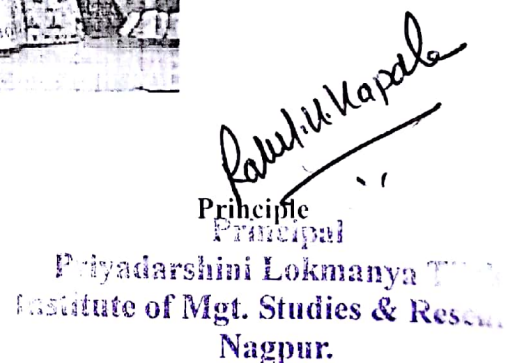 Principle
Principal
Priyadarshini Lokmanya
Institute of Mgt. Studies &
Nagpur.